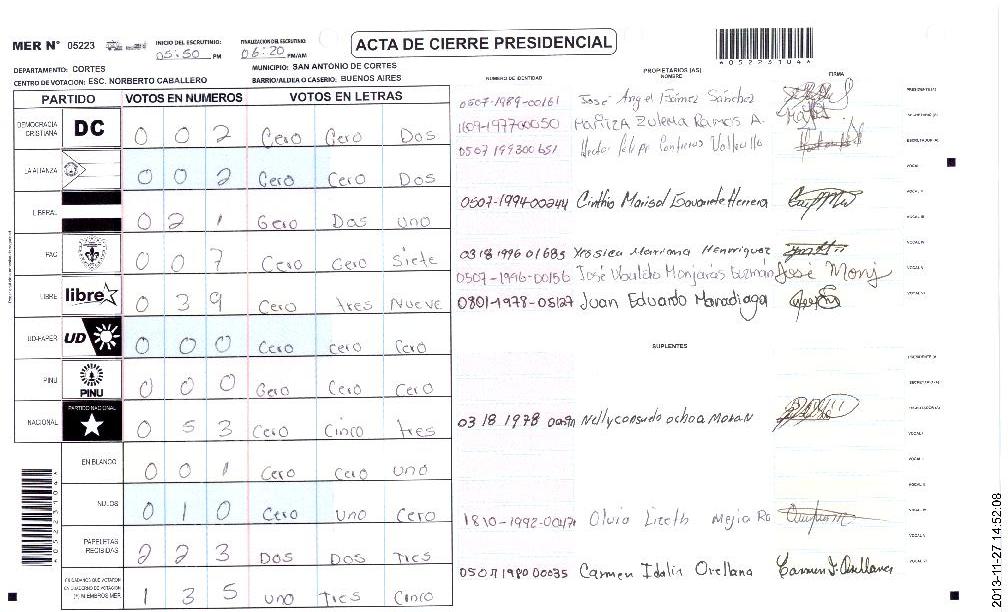 MER N° 05223 INICIO DEL ESCRUTINIO: 05:50 PM FINALIZACION DEL ESCRUTINIO: 06:20 PM/AM
ACTA DE CIERRE PRESIDENCIAL
DEPARTAMENTO: CORTES MUNICIPIO: SAN ANTONIO DE CORTES
CENTRO DE VOTACION: ESC. NORBERTO CABALLERO BARRIO/ALDEA O CASERIO: BUENOS AIRES
PARTIDO VOTOS EN NUMEROS VOTOS EN LETRAS
DEMOCRACIA CRISTIANA DC 0 0 2 Cero Cero Dos
LA ALIANZA 0 0 2 Cero Cero Dos
LIBERAL 0 2 1 Cero Dos uno
PAC 0 0 7 Cero Cero Siete
LIBRE libre 0 3 9 Cero tres Nueve
UD-FAPER UD 0 0 0 Cero Cero Cero
PINU PINU 0 0 0 Cero Cero Cero
NACIONAL PARTIDO NACIONAL 0 5 3 Cero Cinco tres
EN BLANCO 0 0 1 Cero Cero uno
NULOS 0 1 0 Cero uno Cero
PAPELETAS RECIBIDAS 2 2 3 Dos Dos Tres
CIUDADANOS QUE VOTARON EN CUADERNO DE VOTACION (+) MIEMBROS MER 1 3 5 uno Tres Cinco
NUMERO DE IDENTIDAD PROPIETARIOS (AS) NOMBRE FIRMA
0507-1989-00161 José Angel Gámez Sánchez
1609-197700050 Maritza Zulema Ramos A.
0507 199300651 Hector Felipe
0507-1994-00244 Cinthia Marisol Herrera
0318 1996 01685 Yessica Mariana Henrriquez
0507-1996-00156 José Ubaldo Monjarás Guzman José Monj
0801-1978-05127 Juan Eduardo Maradiaga
SUPLENTES
0318 1978 Nelly consuelo ochoa
1810-1992-00471 Olvia Lizeth Mejia Ro
0507 1980 00035 Carmen Idalia Orellana Carmen I. Orellana
A05223104A
2013-11-27 14:52:08